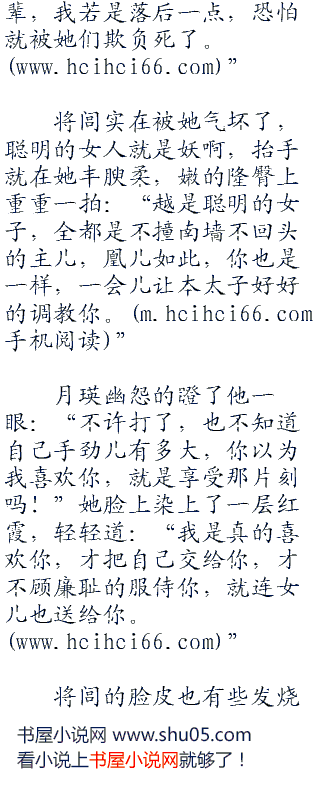 辈，我若是落后一点，恐怕
就被她们欺负死了。
(www.hcihci66.com)”
将闾实在被她气坏了，
聪明的女人就是妖啊，抬手
就在她丰腴柔，嫩的隆臀上
重重一拍：“越是聪明的女
子，全都是不撞南墙不回头
的主儿，凰儿如此，你也是
一样，一会儿让本太子好好
的调教你。(m.hcihci66.com
手机阅读)”
月瑛幽怨的瞪了他一
眼：“不许打了，也不知道
自己手劲儿有多大，你以为
我喜欢你，就是享受那片刻
吗！”她脸上染上了一层红
霞，轻轻道：“我是真的喜
欢你，才把自己交给你，才
不顾廉耻的服侍你，就连女
儿也送给你。
(www.hcihci66.com)”
将闾的脸皮也有些发烧
书屋小说网 www.shu05.com
看小说上书屋小说网就够了！